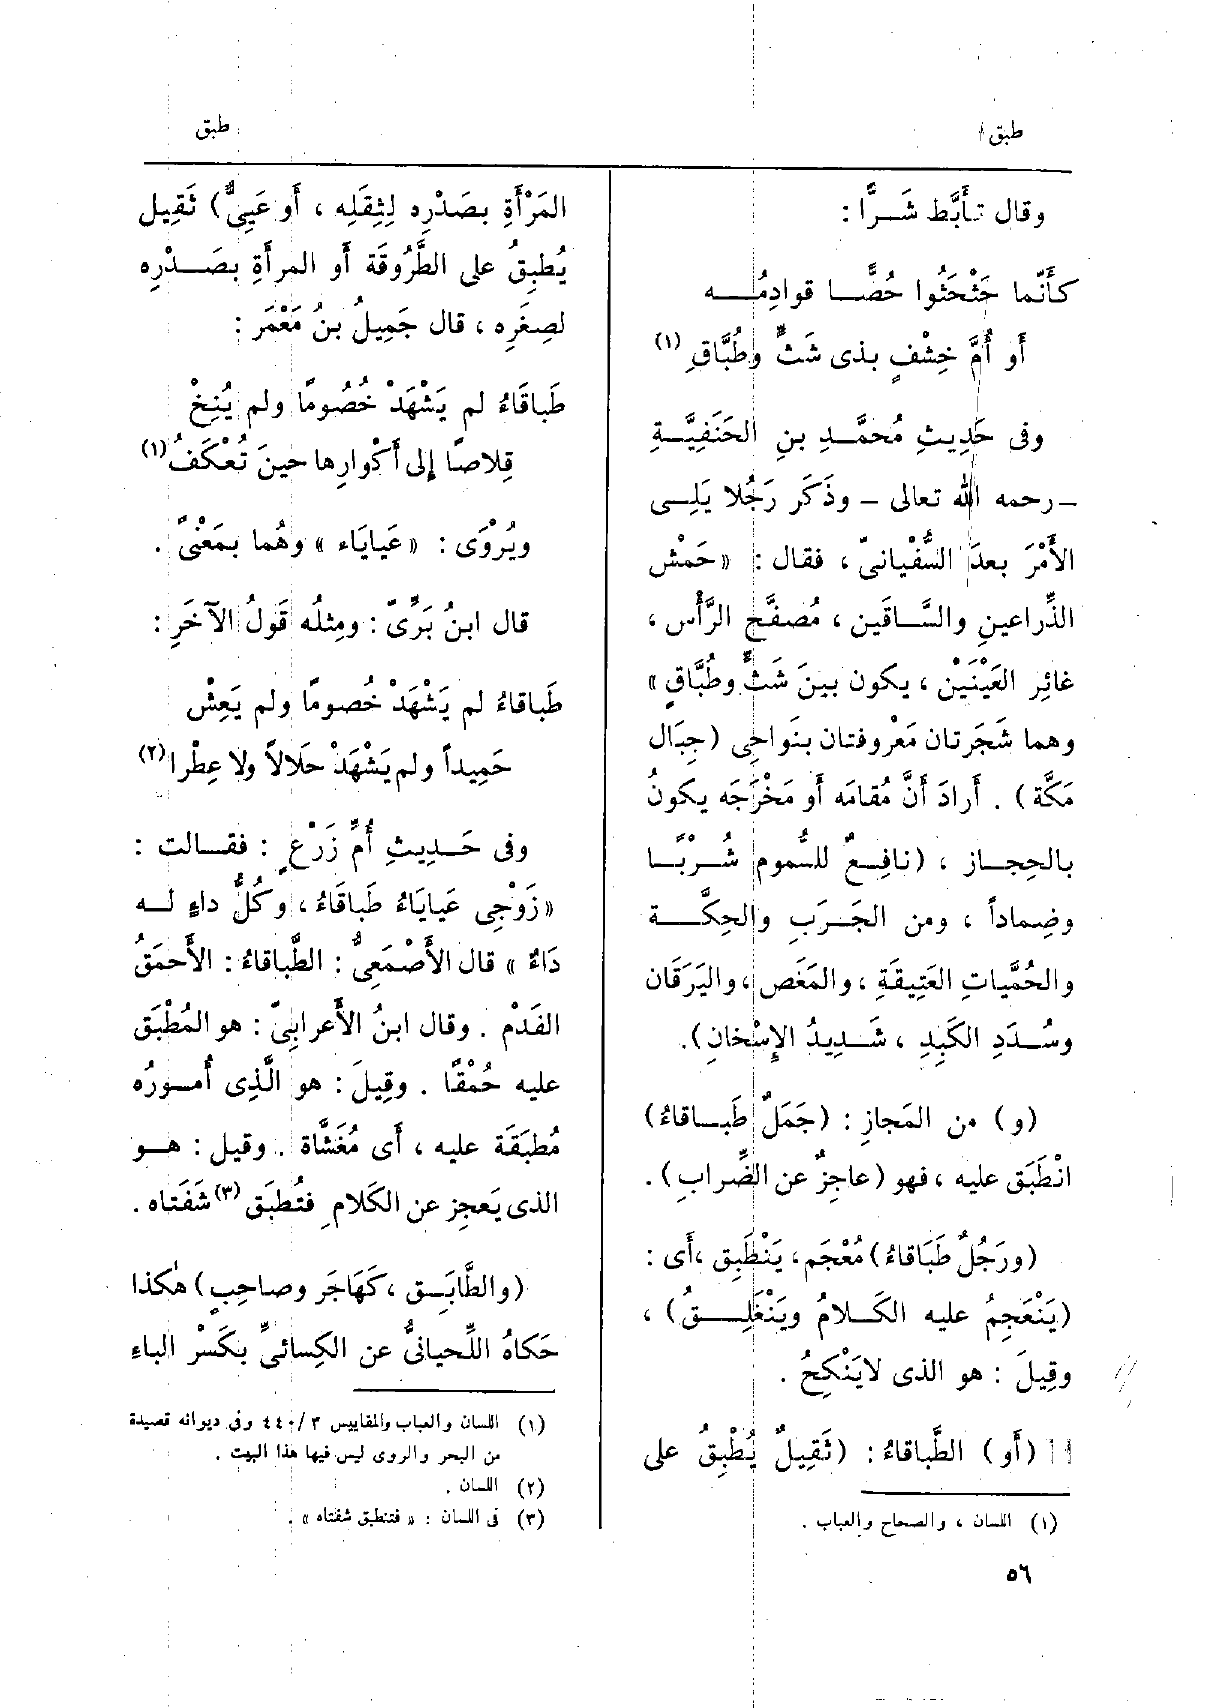 طبق
وقال تأَبَّط شَـرًّا :
كأَنَّما حَثْحَثُوا حُصًّـا قوادِمُـه
أَو أُمَّ خِشْفٍ بذى شَثٍّ وطُبَّاقِ (١)
وفى حَدِيثِ مُحمَّـدِ بنِ الحَنَفِيَّـةِ
- رحمه الله تعالى - وذَكَر رَجُلا يَلِـى
الأَمْرَ بعدَ السُّفْيانىّ ، فقال : « حَمْش
الذِّراعينِ والسَّـاقَين ، مُصفَّح الرَّأْس ،
غائِر العَيْنَيْن ، يكون بينَ شَثٍّ وطُبَّاقٍ »
وهما شَجَرتان مَعْروفتان بنَواحِى (جِبَال
مَكَّة) . أَرادَ أَنَّ مُقامَه أَو مَخْرَجَه يكونُ
بالحِجـاز ، (نافِعٌ للسُّموم شُـرْبًـا
وضِماداً ، ومن الجَـرَبِ والحِكَّـة
والحُمَّياتِ العَتِيقَةِ ، والمَغَص ، واليَرَقَان
وسُـدَدِ الكَبِدِ ، شَـدِيدُ الإِسْخانِ).
(و) من المَجازِ : (جَمَلٌ طَبـاقاءُ)
انْطَبَق عليه ، فهو (عاجِزٌ عن الضِّرابِ) .
(ورَجُلٌ طَبَاقاءُ) مُعْجَم ، يَنْطَبِق ، أَى :
(يَنْعَجِمُ عليه الكَـلامُ ويَنْغَلِـقُ) ،
وقِيلَ : هو الذى لايَنْكِحُ .
(أَو) الطَّباقاءُ : (ثَقِيلٌ يُطْبِقُ على
(١) اللسان ، والصحاح والعباب .
٥٦
طبق
المَرْأَةِ بصَدْرِه لِثِقَلِه ، أَو عَيِىٌّ) ثَقِيل
يُطبِقُ على الطَّرُوقَة أَو المرأَةِ بصَـدْرِه
لصِغَرِه ، قال جَمِيلُ بنُ مَعْمَر :
طَباقَاءُ لم يَشْهَدْ خُصُومًا ولم يُنِخْ
قِلاصًا إلى أَكْوارِها حينَ تُعْكَفُ (١)
ويُرْوَى : « عَيايَاء » وهُما بمَعْنًى .
قال ابنُ بَرِّىّ : ومِثلُه قَولُ الآخَرِ :
طَباقاءُ لم يَشْهَدْ خُصومًا ولم يَعِشْ
حَمِيداً ولم يَشْهَدْ حَلالاً ولا عِطْرا (٢)
وفى حَـدِيثِ أُمِّ زَرْعٍ : فقـالت :
« زَوْجِى عَيايَاءُ طَباقَاءُ ، وكُلُّ داءٍ لـه
دَاءٌ » قال الأَصْمَعِىُّ : الطَّباقاءُ : الأَحمَقُ
الفَدْم . وقال ابنُ الأَعرابِىّ : هو المُطْبَق
عليه حُمْقًا . وقِيلَ : هو الَّذِى أُمـورُه
مُطبَقَة عليه ، أَى مُغَشَّاة . وقيل : هـو
الذى يَعجِز عن الكَلامِ فتُطبَق (٣) شَفَتاه .
(والطَّابَـق ، كَهَاجَر وصاحِبٍ) هٰكذا
حَكاهُ اللِّحيانىُّ عن الكِسائىِّ بكَسْر الباءِ
(١) اللسان والعباب والمقاييس ٣/‏٤٤٠ وفى ديوانه قصيدة
من البحر والروى ليس فيها هذا البيت .
(٢) اللسان .
(٣) فى اللسان : « فتنطبق شفتاه » .